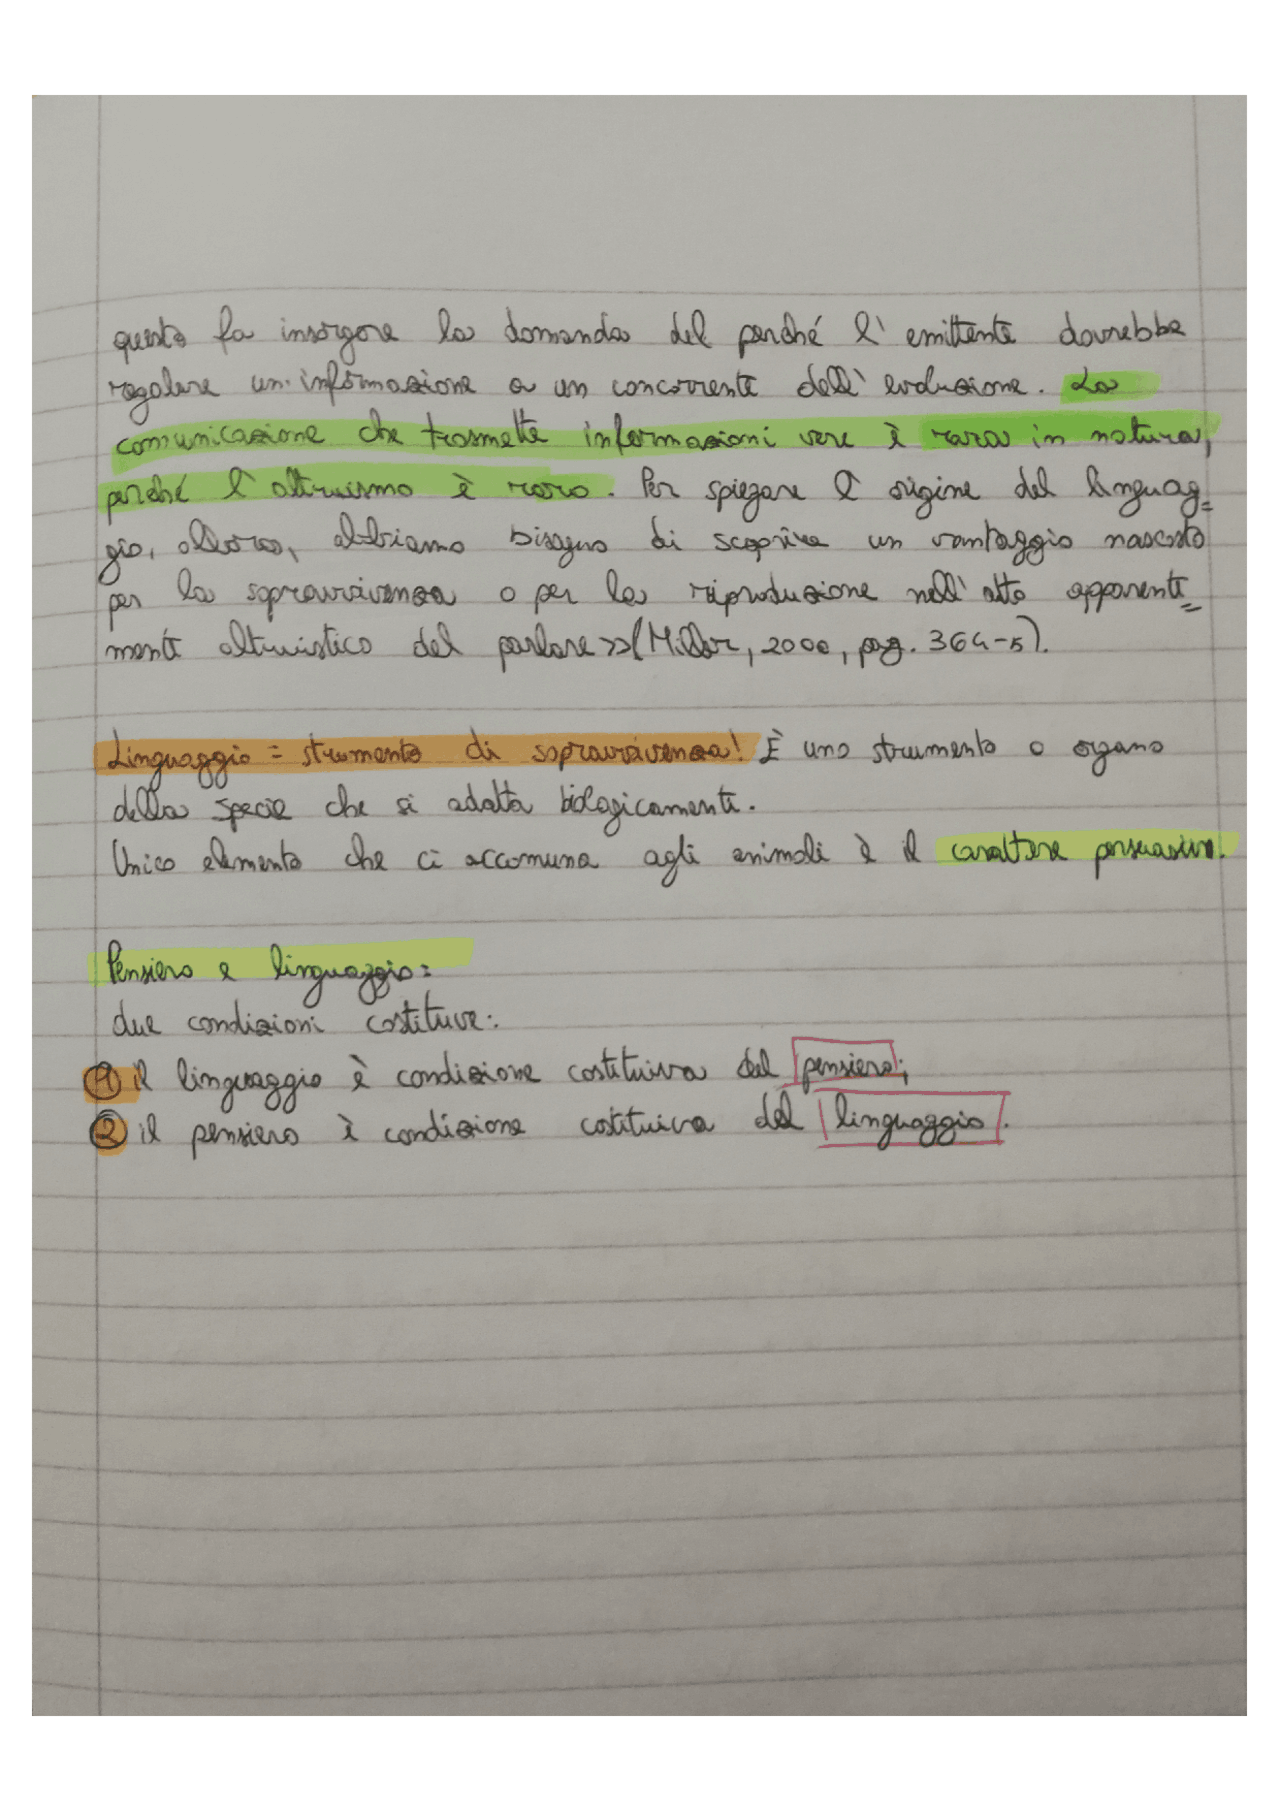 questo fa insorgere la domanda del perché l'emittente dovrebbe
regalare un informazione a un concorrente dell'evoluzione. La
comunicazione che trasmette informazioni vere è rara in natura,
perché l'altruismo è raro. Per spiegare l'origine del linguag=
gio, allora, abbiamo bisogno di scoprire un vantaggio nascosto
per la sopravvivenza o per la riproduzione nell'atto apparente=
mente altruistico del parlare>>(Miller, 2000, pag. 364-5).
Linguaggio = strumento di sopravvivenza! È uno strumento o organo
della specie che si adatta biologicamente.
Unico elemento che ci accomuna agli animali è il carattere persuasivo.
Pensiero e linguaggio:
due condizioni costitutive:
1 il linguaggio è condizione costitutiva del pensiero;
2 il pensiero è condizione costitutiva del linguaggio.